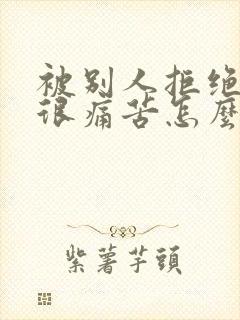 被别人拒绝
很痛苦怎麼
紫薯芋頭